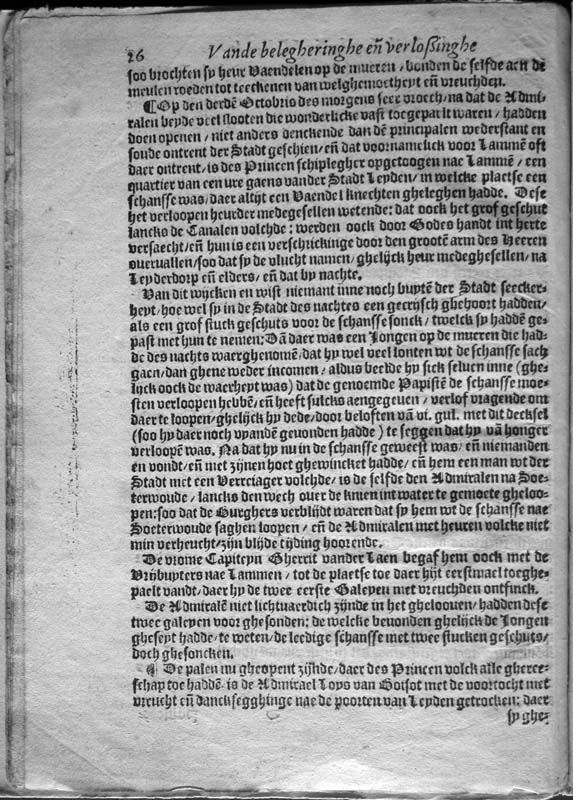 26 Vande belegheringhe eñ verlossinghe
soo brochten sy heur Vaendelen op de mueren / bonden de selfde aen de
meulen roeden tot teeckenen van welghemoetheyt eñ vreuchden.
¶ Op den derdẽ Octobris des morgens seer vroech / na dat de Admi-
ralen beyde veel slooten die wonderlicke vast toegepaelt waren / hadden
doen openen / niet anders denckende dan dẽ principalen wederstant en
soude ontrent der Stadt geschien / eñ dat voornamelick voor Lammẽ oft
daer ontrent / is des Princen schiplegher opgetoogen nae Lammẽ / een
quartier van een ure gaens vander Stadt Leyden / in welcke plaetse een
schansse was / daer altijt een Vaendel knechten gheleghen hadde. Dese
het verloopen heurder medegesellen wetende: dat oock het grof geschut
lancks de Canalen volchde: werden oock door Godes handt int herte
versaecht / eñ hun is een verschrickinge door den grootẽ arm des Heeren
overvallen / soo dat sy de vlucht namen / ghelijck heur medeghesellen / na
Leyderdorp eñ elders / eñ dat by nachte.
Van dit wijcken en wist niemant inne noch buytẽ der Stadt seecker-
heyt / hoe wel sy in de Stadt des nachtes een gecrijsch ghehoort hadden /
als een grof stuck geschuts voor de schansse sonck / twelck sy haddẽ ge-
past met hun te nemen: Dã daer was een Jongen op de mueren die had-
de des nachts waerghenomẽ / dat hy wel veel lonten wt de schansse sach
gaen / dan ghene weder incomen / aldus beelde hy sick selven inne (ghe-
lijck oock de waerheyt was) dat de genoemde Papistẽ de schansse moe-
sten verloopen hebbẽ / eñ heeft sulcks aengegeven / verlof vragende om
daer te loopen / ghelijck hy dede / door beloften vã vi. gul. met dit decksel
(soo hy daer noch vyandẽ gevonden hadde) te seggen dat hy vã honger
verloopẽ was. Na dat hy nu in de schansse geweest was / eñ niemanden
en vondt / eñ met zijnen hoet ghewincket hadde / eñ hem een man wt der
Stadt met een Verrejager volchde / is de selfde den Admiralen na Soe-
terwoude / lancks den wech over de knien int water te gemoete gheloo-
pen: soo dat de Burghers verblijdt waren dat sy hem wt de schansse nae
Soeterwoude saghen loopen / eñ de Admiralen met heuren volcke niet
min verheucht / zijn blijde tijding hoorende.
De vrome Capiteyn Gherrit vander Laen begaf hem oock met de
Vrijbuyters nae Lammen / tot de plaetse toe daer hijt eerstmael toeghe-
paelt vandt / daer hy de twee eerste Galeyen met vreuchden ontfinck.
De Admiralẽ niet lichtvaerdich zijnde in het ghelooven / hadden dese
twee galeyen voor ghesonden: de welcke bevonden ghelijck de Jongen
gheseyt hadde / te weten / de leedige schansse met twee stucken geschuts /
doch ghesoncken.
¶ De palen nu gheopent zijnde / daer des Princen volck alle gheree-
schap toe haddẽ is de Admirael Loys van Boisot met de voortocht met
vreucht eñ dancksegghinge nae de poorten van Leyden getrocken: daer
sy ghe-